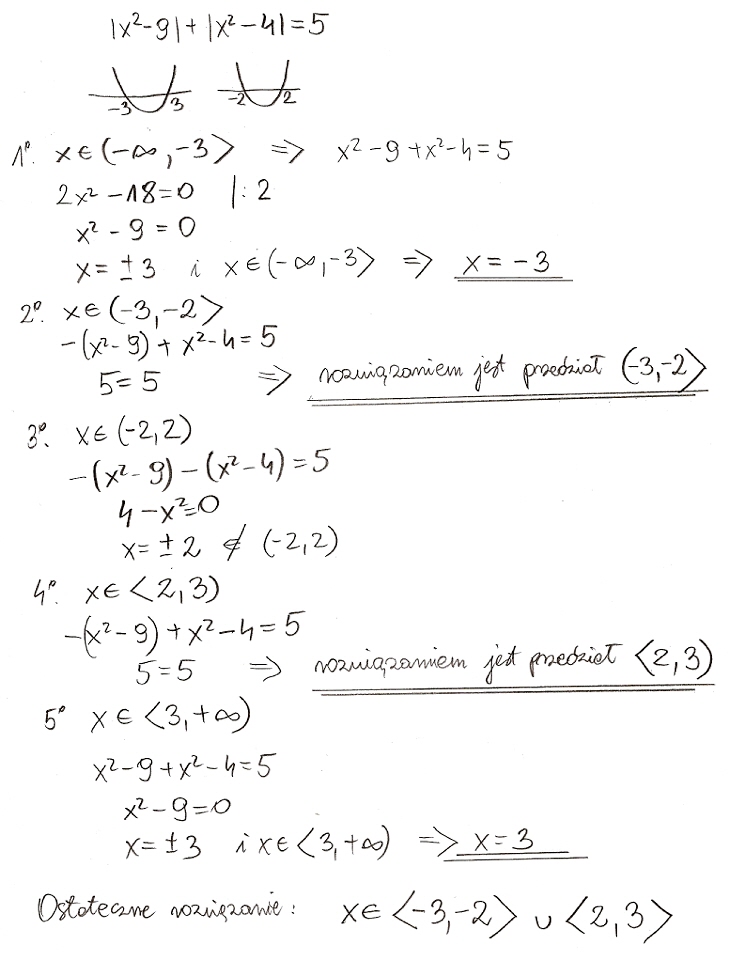 |x²-9|+|x²-4|=5
-3 3 -2 2
1°. x∈(-∞,-3> => x²-9+x²-4=5
2x²-18=0 |:2
x²-9=0
x=±3 i x∈(-∞,-3> => x=-3
2°. x∈(-3,-2>
-(x²-9)+x²-4=5
5=5 => rozwiązaniem jest przedział (-3,-2>
3°. x∈(-2,2)
-(x²-9)-(x²-4)=5
4-x²=0
x=±2 ∉ (-2,2)
4°. x∈<2,3)
-(x²-9)+x²-4=5
5=5 => rozwiązaniem jest przedział <2,3)
5° x∈<3,+∞)
x²-9+x²-4=5
x²-9=0
x=±3 i x∈<3,+∞) => x=3
Ostateczne rozwiązanie: x∈<-3,-2> ∪ <2,3>